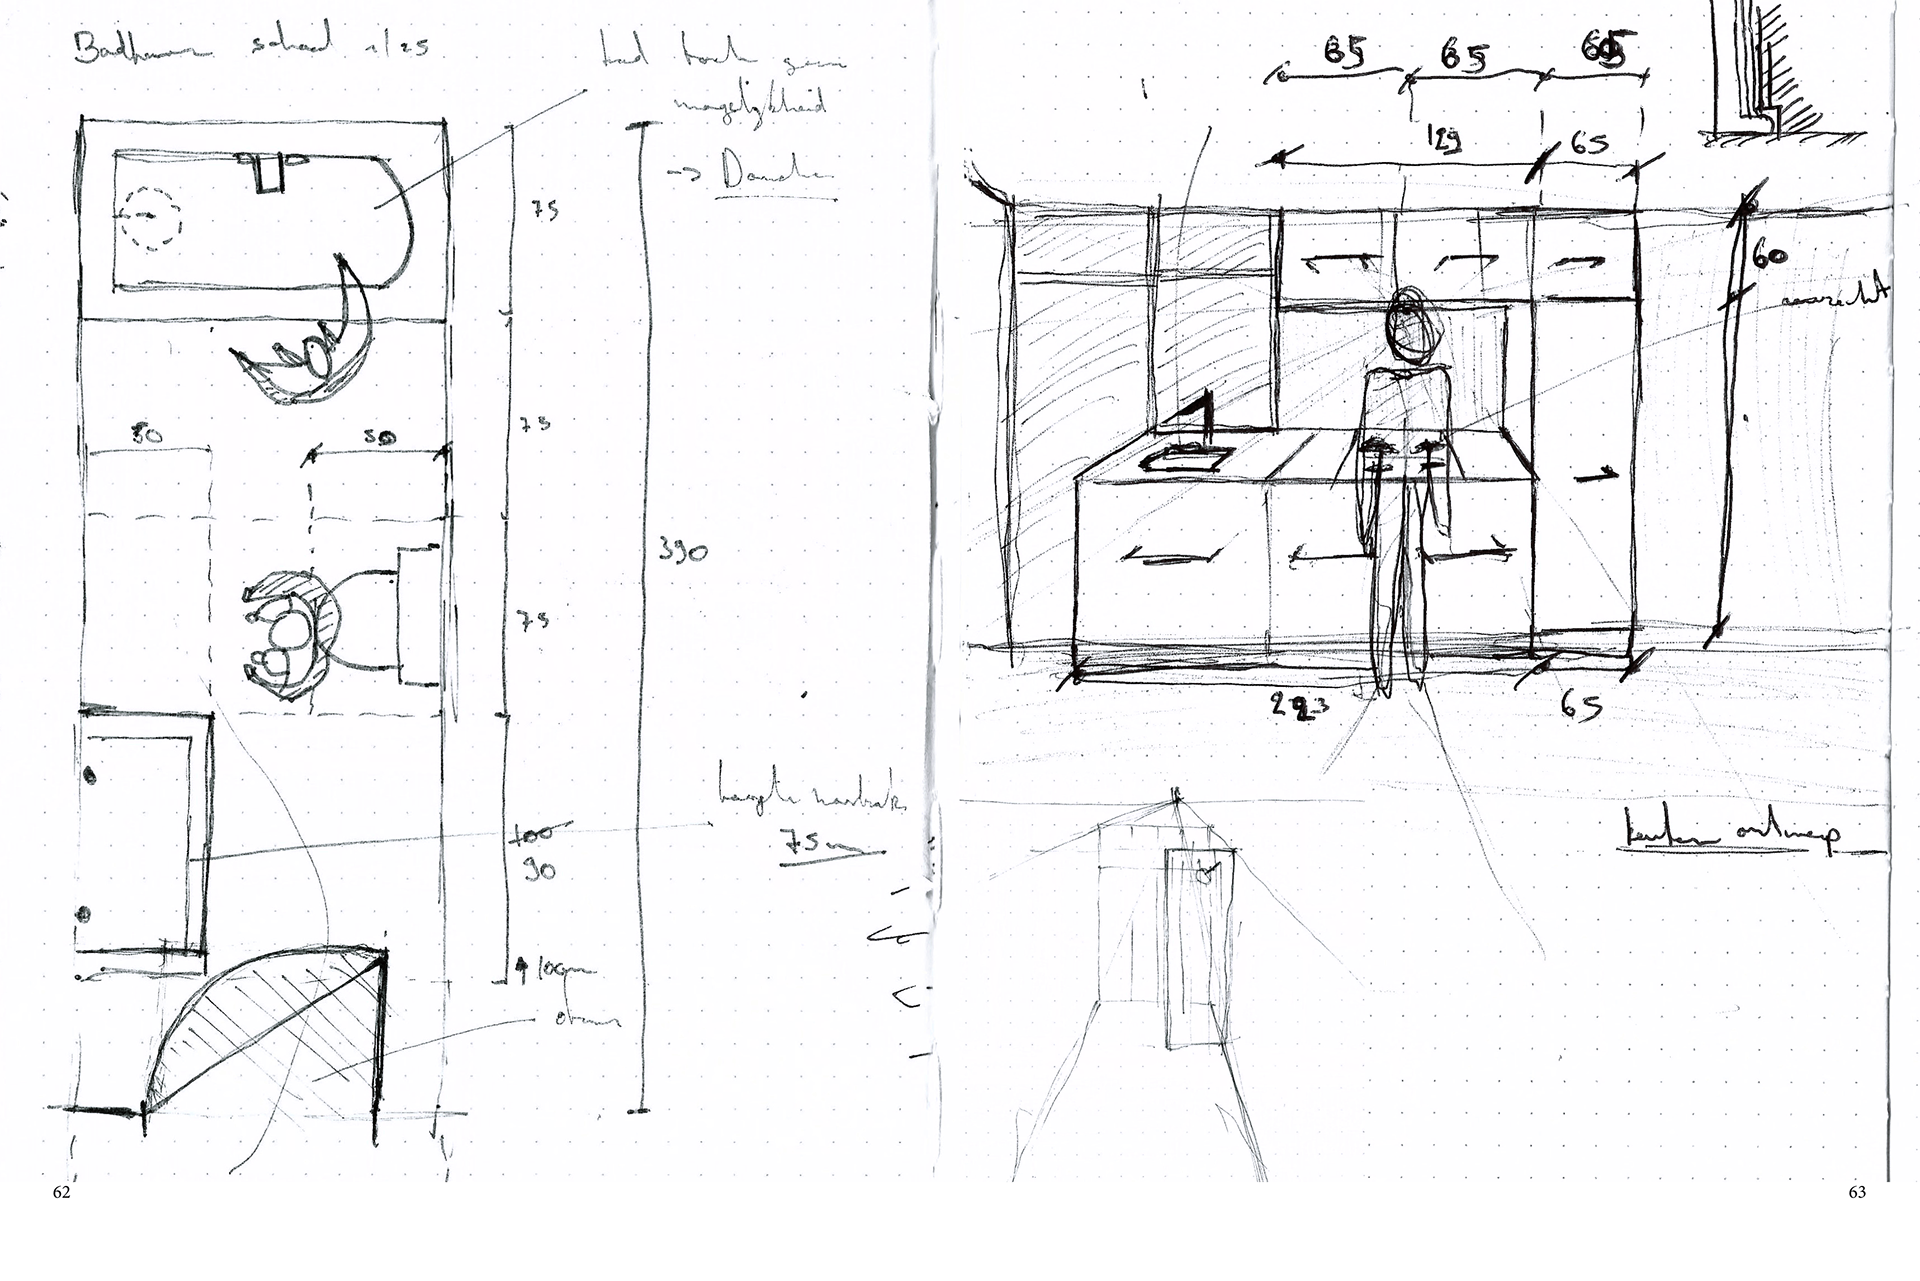 Badkamer schaal 1/25
bad toch geen
mogelijkheid
→ Douche
75
75
50
50
390
75
hoogte wastafel
75 cm
100
90
10cm
62
65
65
65
129
65
60
223
65
keuken ontwerp
63